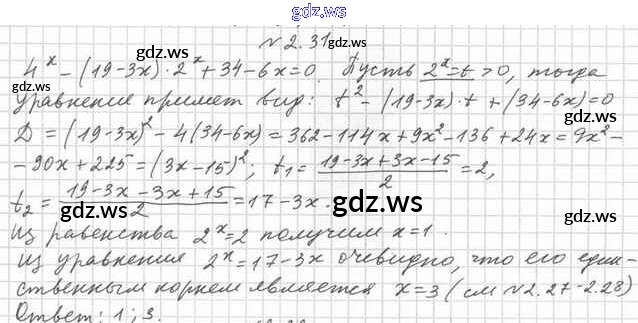 gdz.ws
№2.31
gdz.ws gdz.ws
4^x - (19-3x)·2^x + 34-6x=0. Пусть 2^x=t>0, тогда
уравнение примет вид: t^2 - (19-3x)·t + (34-6x)=0
D = (19-3x)^2 - 4(34-6x) = 362-114x+9x^2-136+24x=9x^2-
-90x+225=(3x-15)^2; t1= (19-3x+3x-15)/2 =2,
t2 = (19-3x-3x+15)/2 =17-3x.
gdz.ws gdz.ws gdz.ws
Из равенства 2^x=2 получим x=1.
Из уравнения 2^x=17-3x очевидно, что его един-
ственным корнем является x=3 (см №2.27-2.28)
Ответ: 1; 3.
gdz.ws gdz.ws